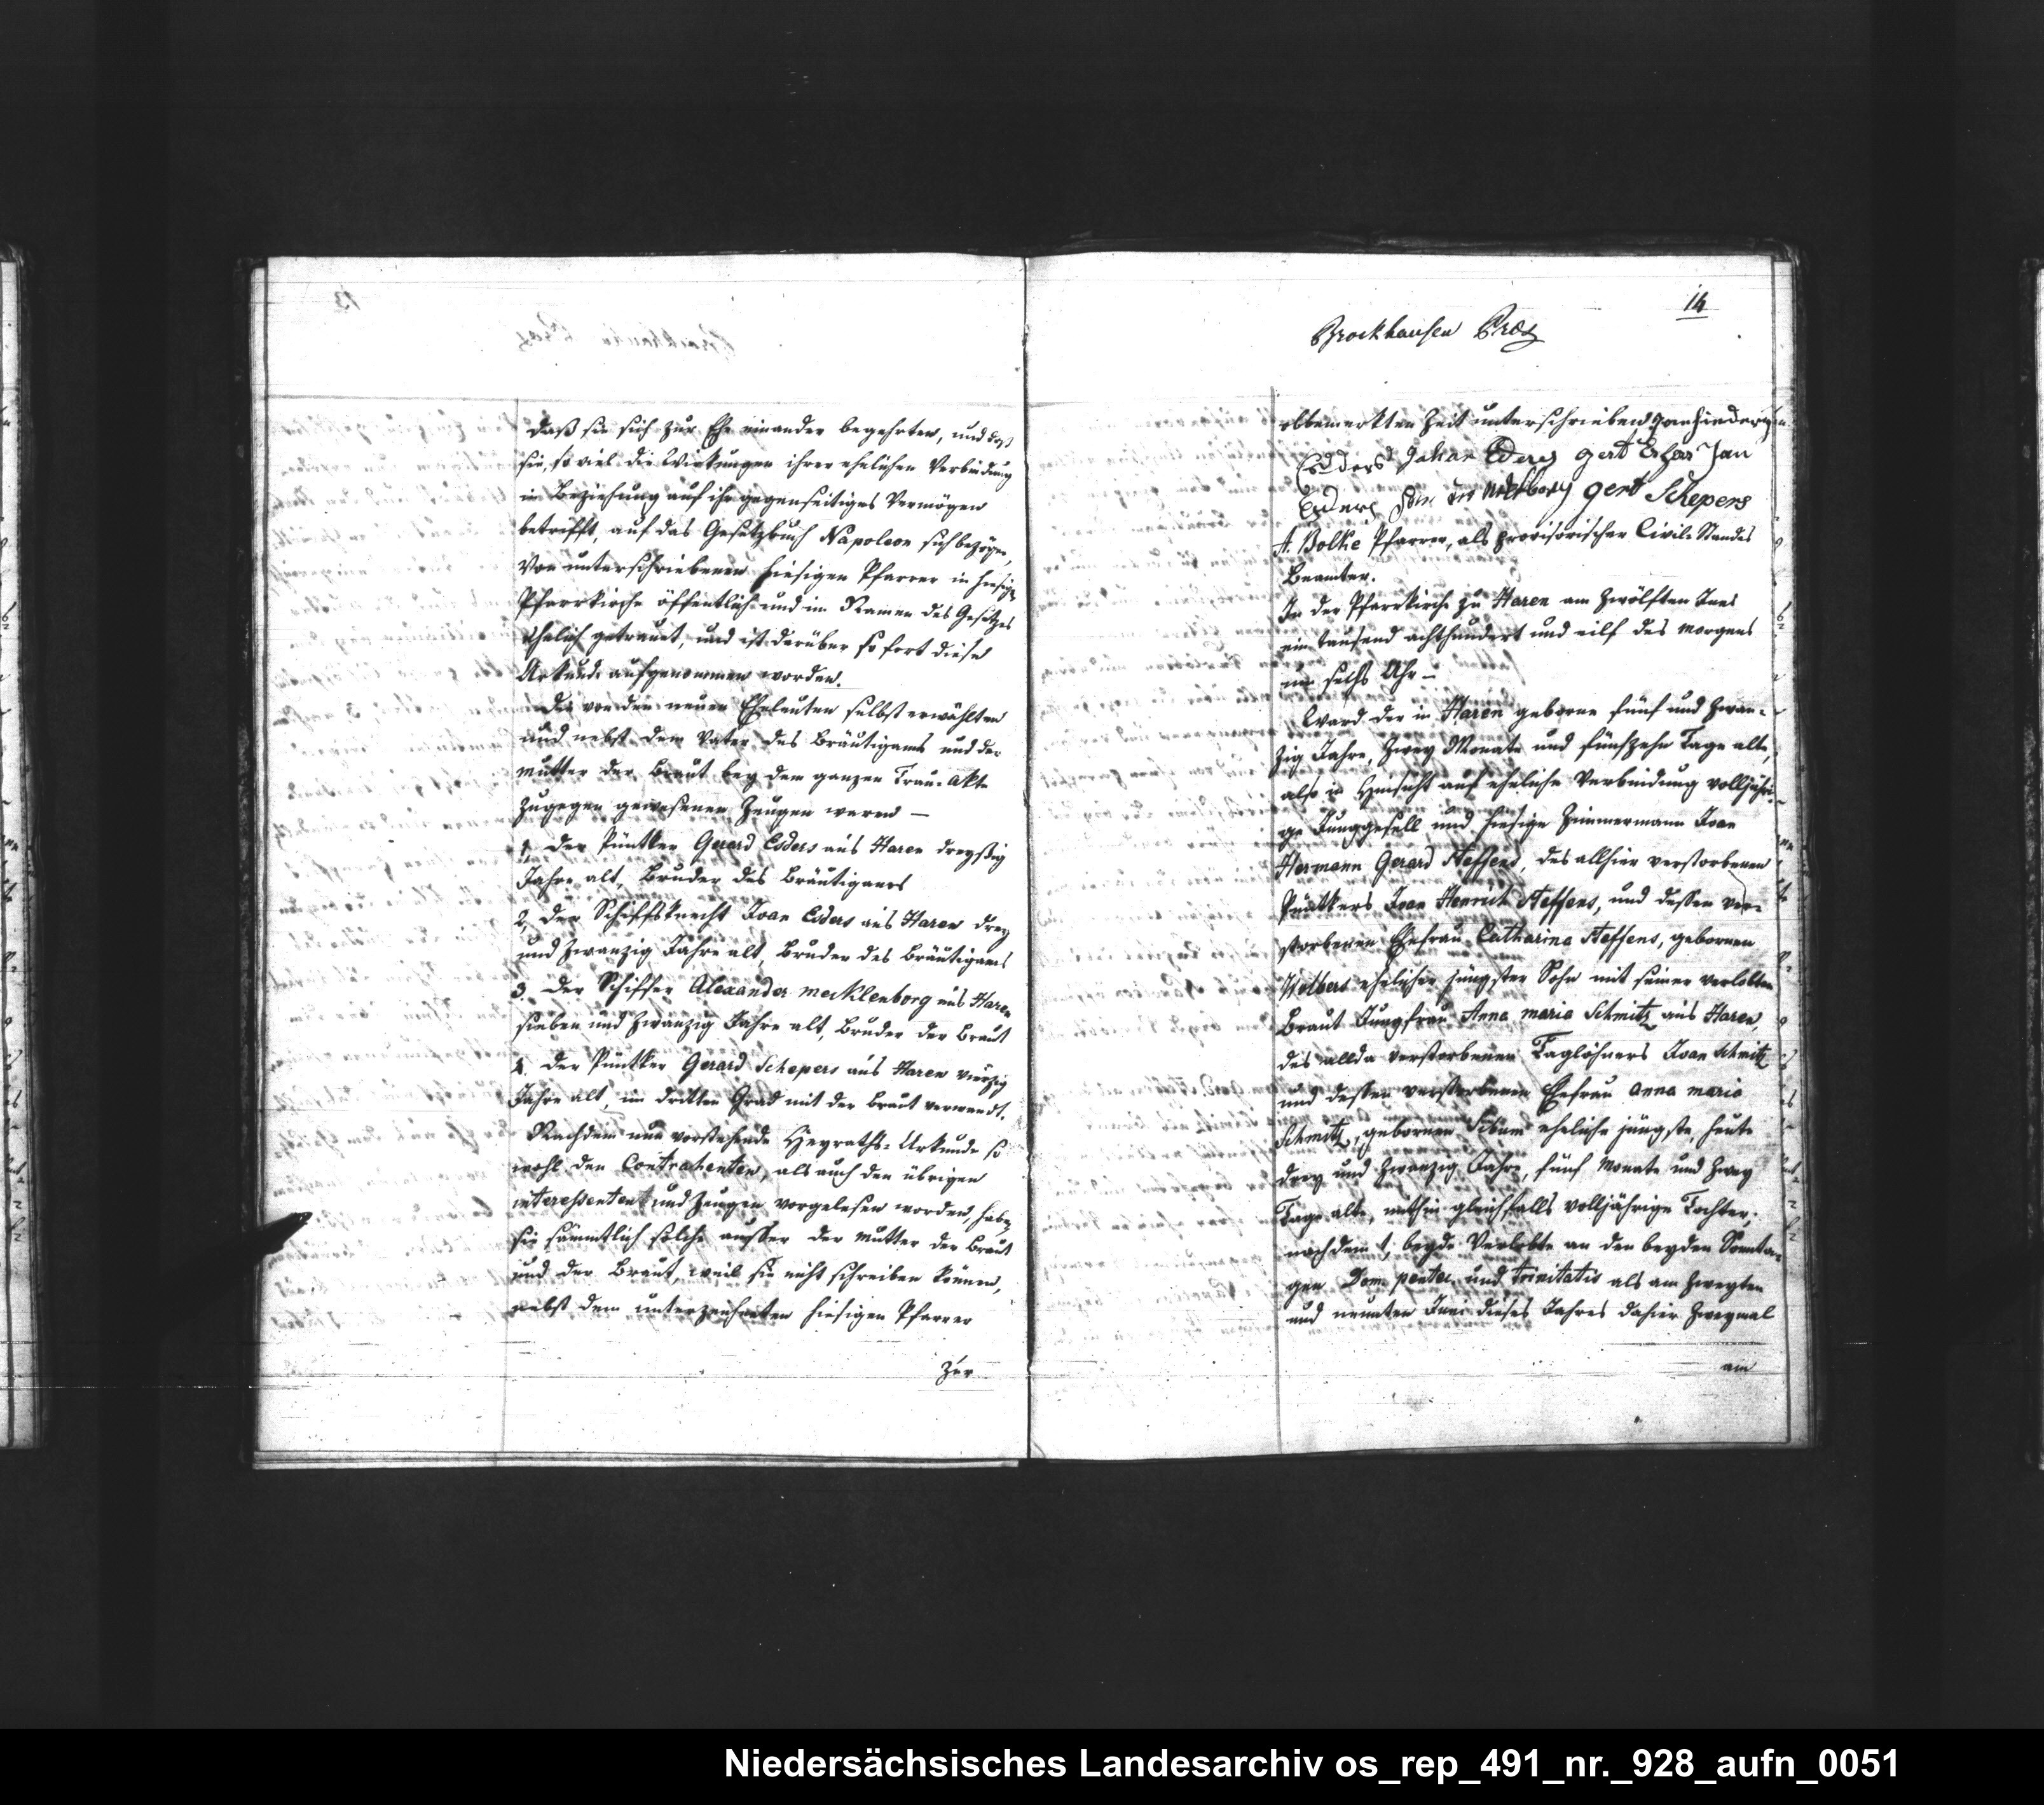 daß sie sich zur Ehe einander begehrten, und daß
sie, so viel die Wirkungen ihrer ehelichen Verbindung
in Beziehung auf ihr gegenseitiges Vermögen
betrifft, auf das Gesetzbuch Napoleon sich bezögen,
von unterschriebenen hiesigen Pfarrer in hiesiger
Pfarrkirche öffentlich und im Namen des Gesetzes
ehelich getrauet, und ist darüber so fort diese
Urkunde aufgenommen worden.
Die von den neuen Eheleuten selbst erwählten
und nebst dem Vater des Bräutigams und der
Mutter der Braut bey dem ganzen Trau-Akte
zugegen gewesenen Zeugen waren —
1, der Püntker Gerard Esders aus Haren dreyßig
Jahre alt, Bruder des Bräutigams
2, der Schiffsknecht Joan Esders aus Haren drey
und zwanzig Jahre alt, Bruder des Bräutigams
3. der Schiffer Alexander Mecklenborg aus Haren
sieben und zwanzig Jahre alt, Bruder der Braut
4. der Püntker Gerard Schepers aus Haren vierzig
Jahre alt, im dritten Grad mit der Braut verwandt.
Nachdem nun vorstehende Heyraths-Urkunde so
wohl den Contrahenten, als auch den übrigen
interessenten und Zeugen vorgelesen worden, haben
sie sämmtlich solche ausser der Mutter der Braut
und der Braut, weil sie nicht schreiben können,
nebst dem unterzeichneten hiesigen Pfarrer
zur
14
Brockhausen Præs
obbemerkten Zeit unterschrieben
Jan
gert Schepers
A. Bolke Pfarrer, als provisorischer Civil-Standes
Beamter.
In der Pfarrkirche zu Haren am zwölften Juni
ein tausend achthundert und eilf des Morgens
um sechs Uhr —
Ward der in Haren geborne fünf und zwan-
zig Jahre, zwey Monate und fünfzehn Tage alte,
also in Hinsicht auf eheliche Verbindung volljähri-
ge Junggesell und hiesige Zimmermann Joan
Hermann Gerard Steffens, des allhier verstorbenen
Püntkers Joan Henrich Steffens, und dessen ver-
storbenen Ehefrau Catharina Steffens, gebornen
Wolbers ehelicher jüngster Sohn mit seiner verlobten
Braut Jungfrau Anna Maria Schmitz aus Haren,
des allda verstorbenen Taglöhners Joan Schmitz
und dessen verstorbenen Ehefrau Anna Maria
Schmitz, gebornen eheliche jüngste, heute
drey und zwanzig Jahre, fünf Monate und zwey
Tage alte, mithin gleichfalls volljährige Tochter;
nachdem 1, beyde Verlobte an den beyden Sonnta-
gen Dom. pentec. und trinitatis als am zweyten
und neunten Juni dieses Jahres dahier zweymal
am
Niedersächsisches Landesarchiv os_rep_491_nr._928_aufn_0051